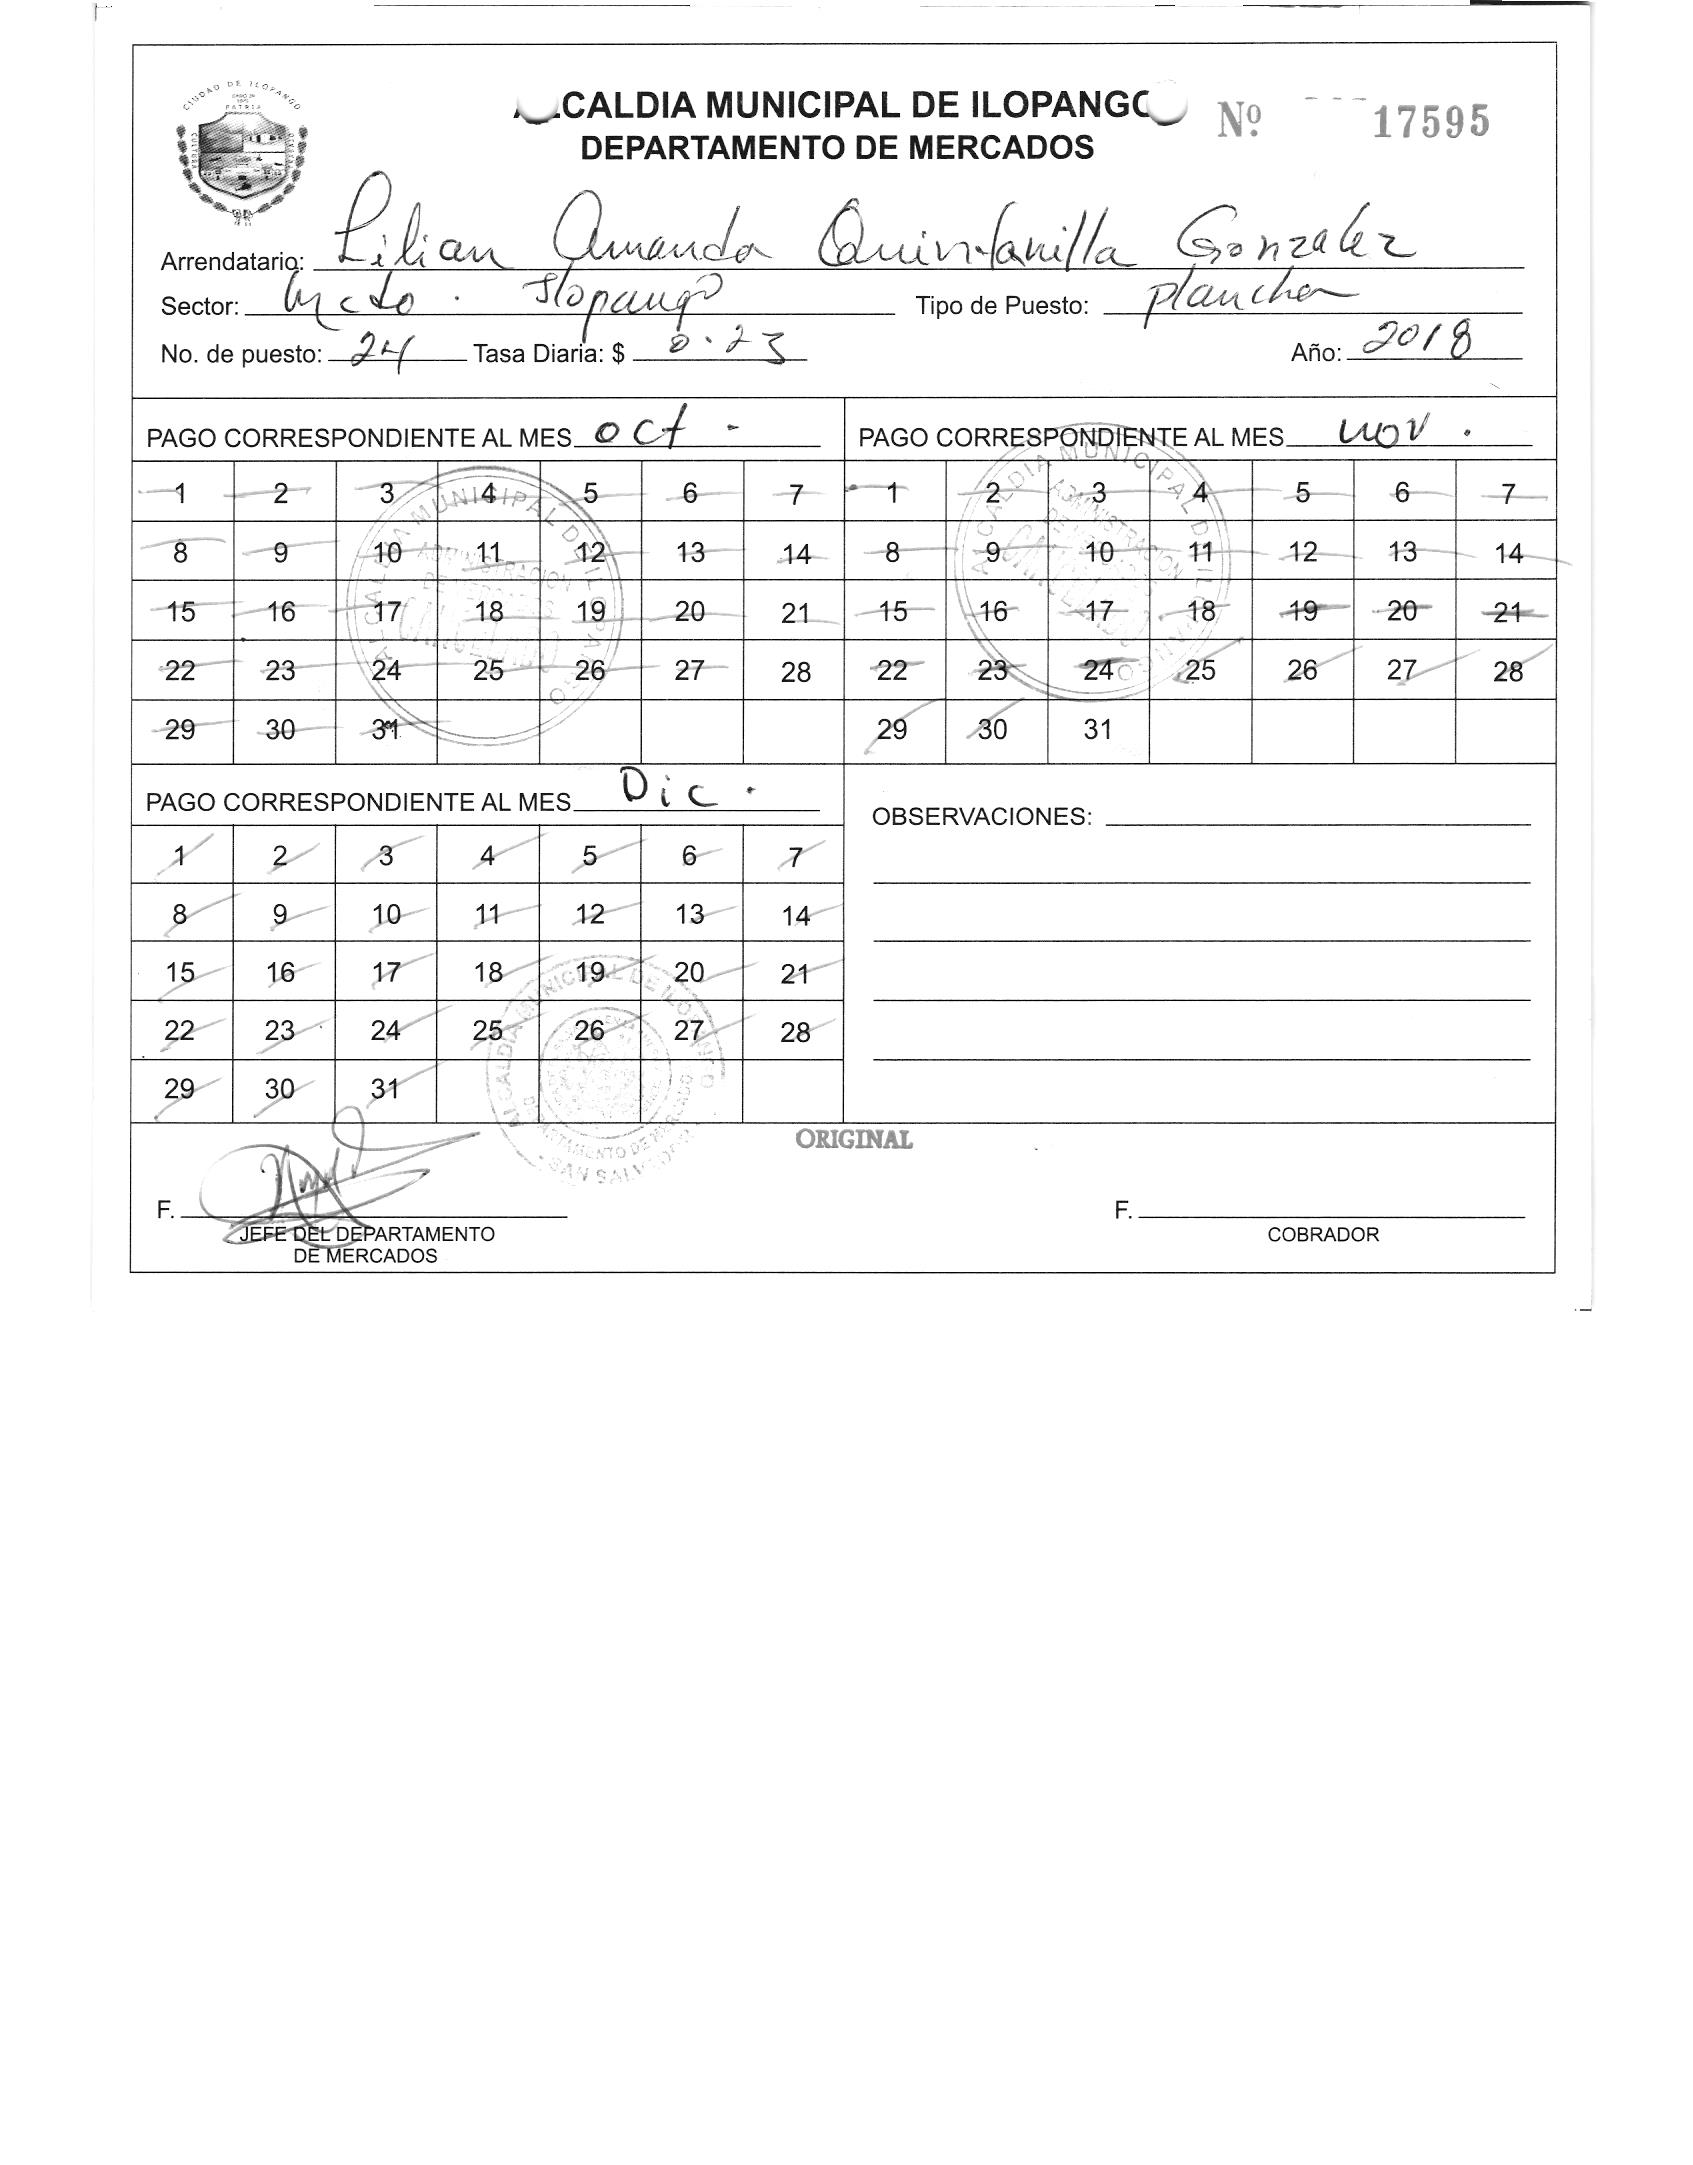 CIUDAD DE ILOPANGO
PATRIA
CULTURA
ALCALDIA MUNICIPAL DE ILOPANGO
Nº 17595
DEPARTAMENTO DE MERCADOS
Arrendatario: Lilian Amanda Quintanilla Gonzalez
Sector: Mcdo. Ilopango Tipo de Puesto: plancha
No. de puesto: 24 Tasa Diaria: $ 0.23 Año: 2018
PAGO CORRESPONDIENTE AL MES oct.
1 2 3 4 5 6 7
8 9 10 11 12 13 14
15 16 17 18 19 20 21
22 23 24 25 26 27 28
29 30 31
ALCALDIA MUNICIPAL DE ILOPANGO
ADMINISTRACION
DE MERCADOS
CANCELADO
PAGO CORRESPONDIENTE AL MES nov.
1 2 3 4 5 6 7
8 9 10 11 12 13 14
15 16 17 18 19 20 21
22 23 24 25 26 27 28
29 30 31
ALCALDIA MUNICIPAL DE ILOPANGO
ADMINISTRACION
DE MERCADOS
CANCELADO
PAGO CORRESPONDIENTE AL MES Dic.
1 2 3 4 5 6 7
8 9 10 11 12 13 14
15 16 17 18 19 20 21
22 23 24 25 26 27 28
29 30 31
ALCALDIA MUNICIPAL DE ILOPANGO
DEPARTAMENTO DE MERCADO
SAN SALVADOR
OBSERVACIONES:
ORIGINAL
F.
JEFE DEL DEPARTAMENTO
DE MERCADOS
F.
COBRADOR